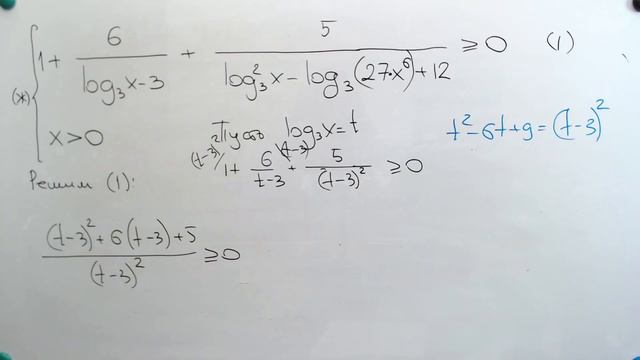 (*) { 1 + 6/(log₃x−3) + 5/(log₃²x − log₃(27·x⁶) + 12) ≥ 0 (1)
x>0
Пусть log₃x = t
t² − 6t + 9 = (t−3)²
Решим (1): (t−3)²/ 1 + 6/(t−3) (t−3)/ + 5/(t−3)² ≥ 0
((t−3)² + 6(t−3) + 5)/(t−3)² ≥ 0